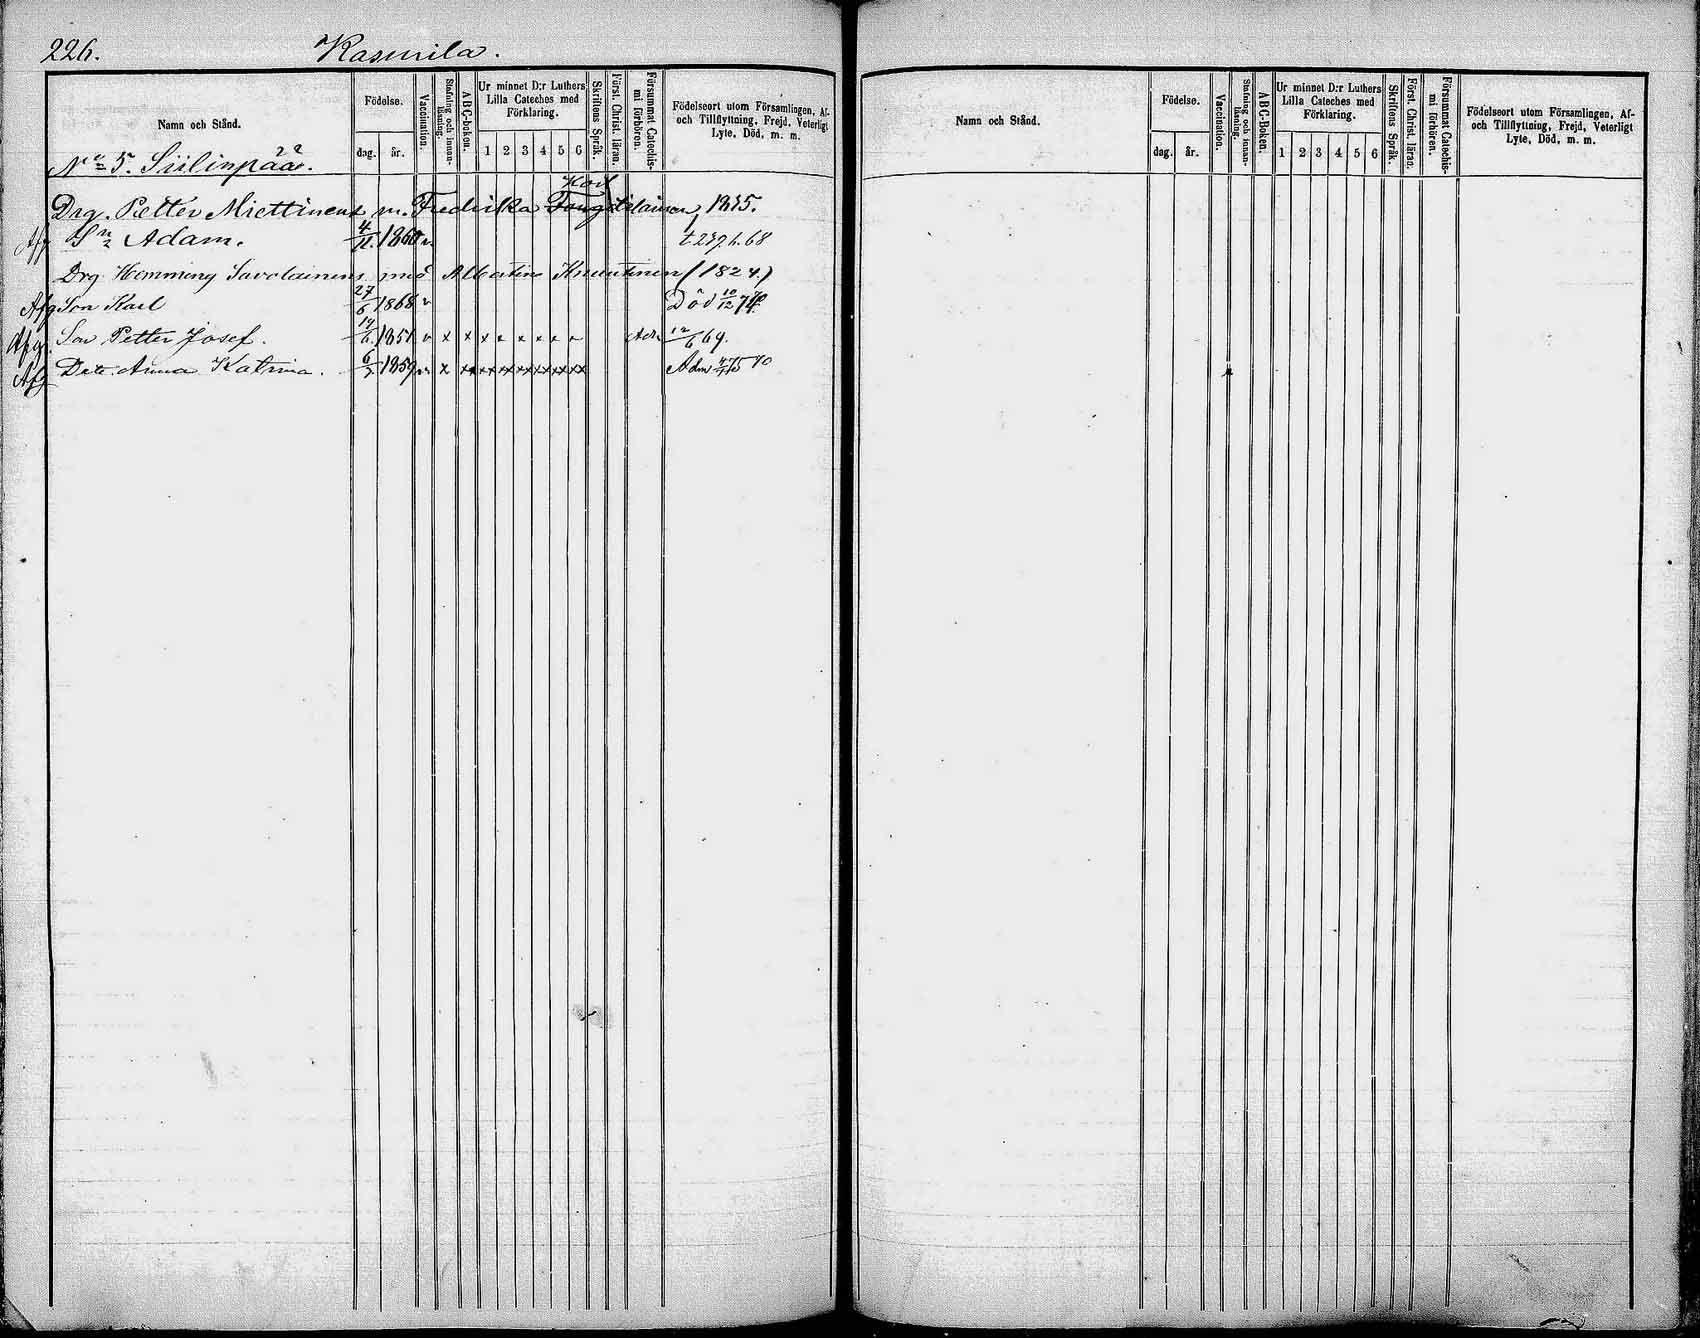 226. Kasurila.
Namn och Stånd.
Födelse.
dag. år.
Vaccination.
Stafning och innanläsning.
ABC-boken.
Ur minnet D:r Luthers Lilla Cateches med Förklaring.
1 2 3 4 5 6
Skriftens Språk.
Först. Christ. läran.
Försummat Catechismi förhören.
Födelseort utom Församlingen, Af- och Tillflyttning, Frejd, Veterligt Lyte, Död, m. m.
No 5. Siilinpää.
Drg. Petter Miettinens m. Fredrika Kostilainen, 1835.
Afg Sn Adam. 4/11. 1860 v
Drg Hemming Savolainens med Albertina Knuutinen (1824.)
Afg Son Karl 27/6 1868 v Död 10/12
Afg. Son Petter Josef. 1851 v x x x 12/6 69.
Afg Dotr. Anna Katrina. 6/2 1859 v x xx xx xx xx xx xx xx Adm 70
Namn och Stånd.
Födelse.
dag. år.
Vaccination.
Stafning och innanläsning.
ABC-Boken.
Ur minnet D:r Luthers Lilla Cateches med Förklaring.
1 2 3 4 5 6
Skriftens Språk.
Först. Christ. läran.
Försummat Catechismi förhören.
Födelseort utom Församlingen, Af- och Tillflyttning, Frejd, Veterligt Lyte, Död, m. m.